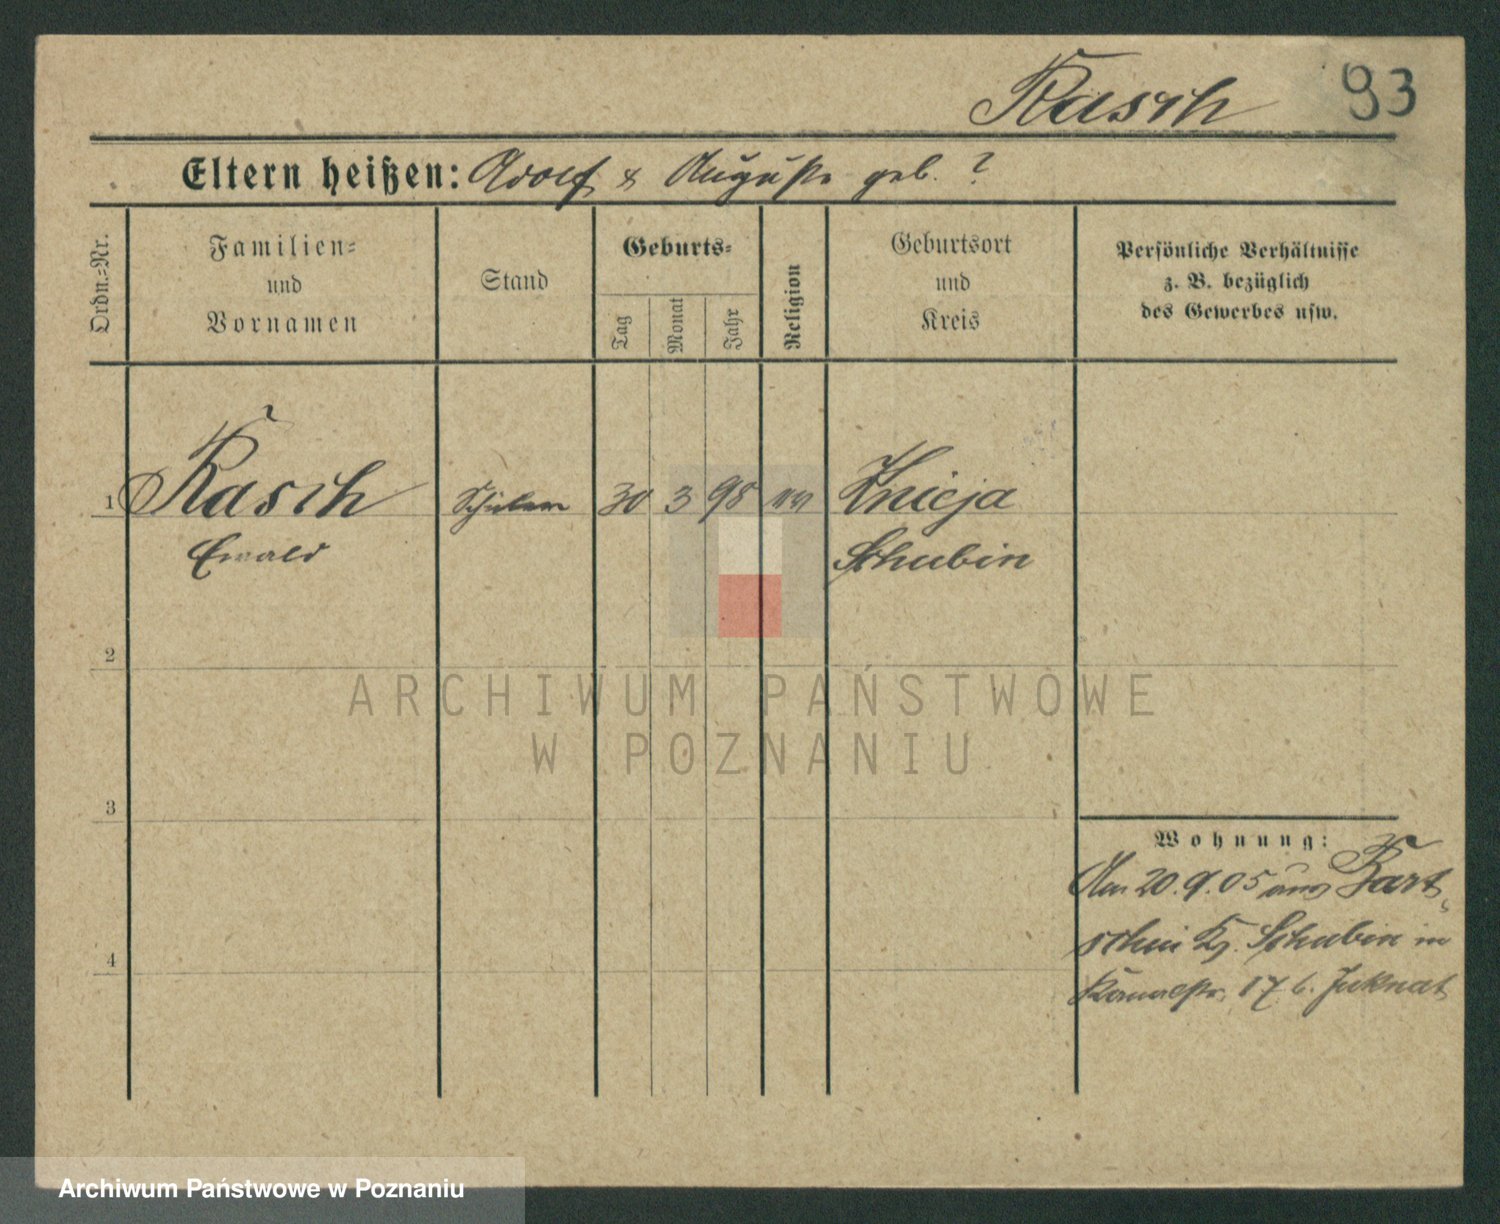 Rasch 93
Eltern heißen: Adolf & Auguste geb. ?
Ordn.=Nr.
Familien=
und
Vornamen
Stand
Geburts=
Tag
Monat
Jahr
Religion
Geburtsort
und
Kreis
Persönliche Verhältnisse
z. B. bezüglich
des Gewerbes usw.
1 Rasch Schüler 30 3 98 Znieja
Ewald Schubin
2
3
4
Wohnung:
Am 20.9.05 aus Bart-
schin Kr. Schubin in
17 b. Juknat
ARCHIWUM PAŃSTWOWE
W POZNANIU
Archiwum Państwowe w Poznaniu